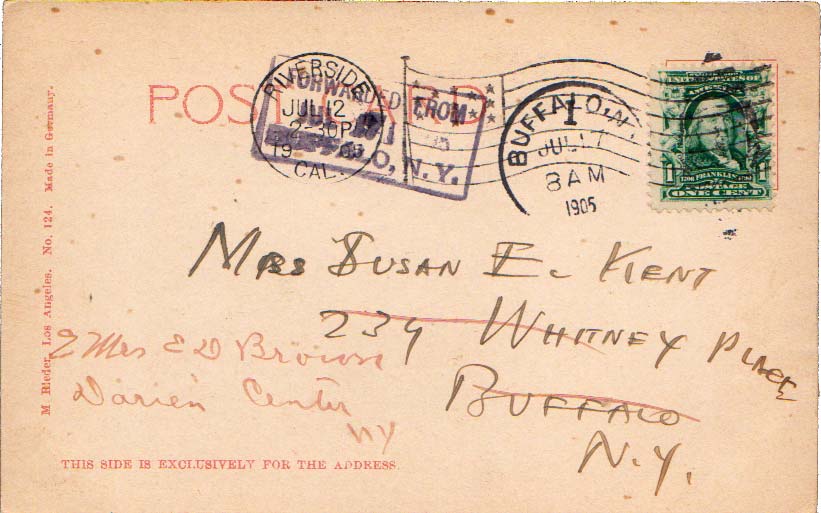 POST CARD
RIVERSIDE
JUL 12
2-30P
1905
CAL.
FORWARDED FROM
BUFFALO, N.Y.
BUFFALO, N.Y.
1
JUL 17
8 AM
1905
ONE CENT
POSTAGE
M Rieder, Los Angeles. No. 124. Made in Germany.
Mrs Susan E. Kent
234 Whitney Place
Buffalo
N.Y.
Mrs E D Brown
Darien Center
NY
THIS SIDE IS EXCLUSIVELY FOR THE ADDRESS.